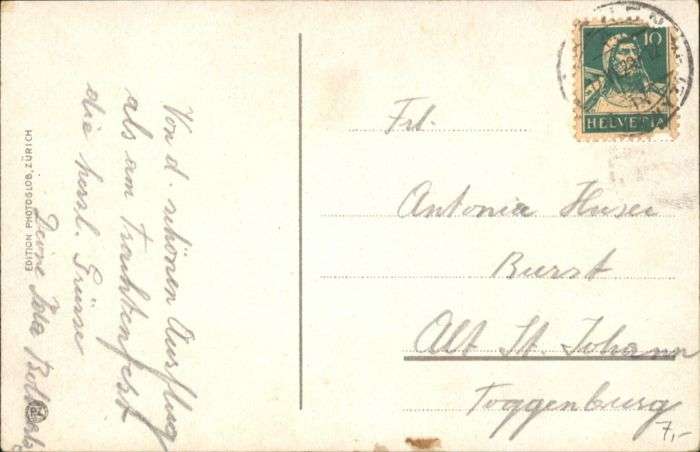 Von d. schönen Ausflug
als am Trachtenfest
die herzl. Grüsse
Deine Ida
EDITION PHOTOGLOB, ZÜRICH
PZ
10
HELVETIA
Frl.
Antonia Huser
Burst
Alt St. Johann
Toggenburg
7,-